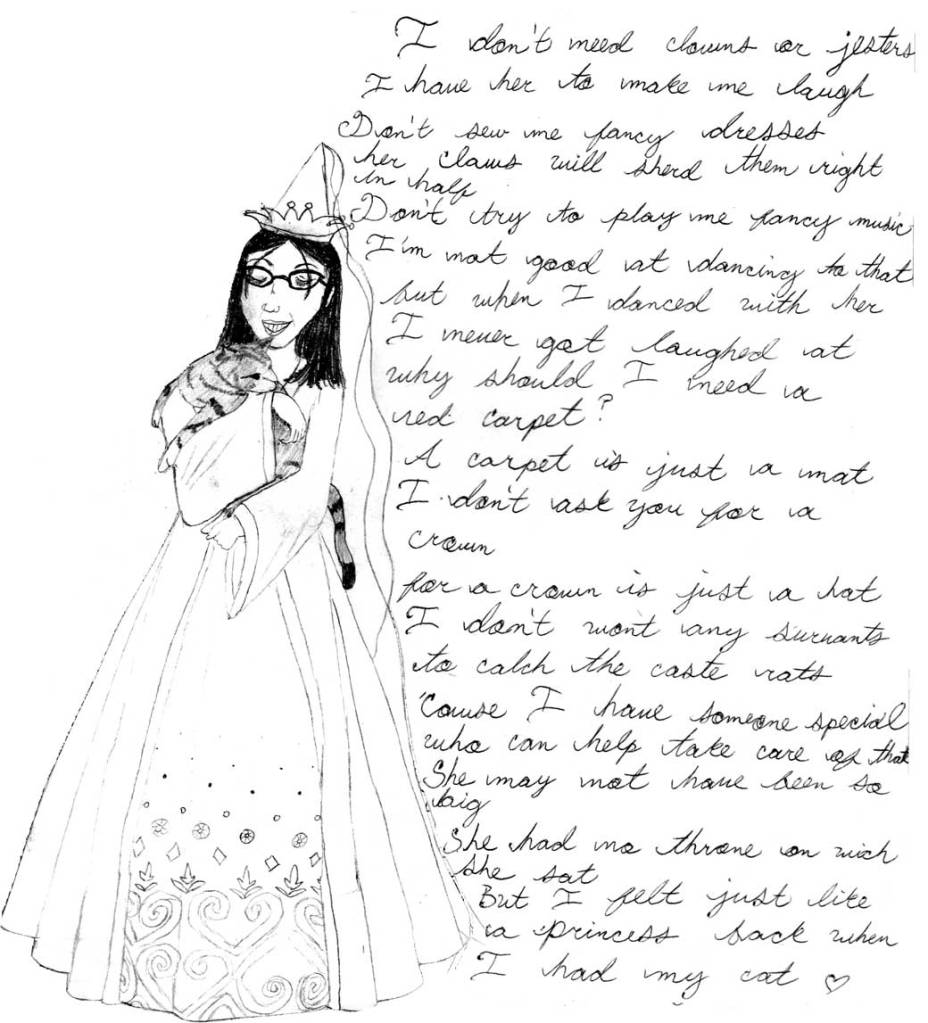 I don't need clowns or jesters
I have her to make me laugh
Don't sew me fancy dresses
her claws will sherd them right
in half
Don't try to play me fancy music
I'm not good at dancing to that
but when I danced with her
I never got laughed at
why should I need a
red carpet?
A carpet is just a mat
I don't ask you for a
crown
for a crown is just a hat
I don't won't any survants
to catch the caste rats
'Cause I have someone special
who can help take care of that
She may not have been so
big
She had no throne on wich
she sat
But I felt just like
a princess back when
I had my cat ♡